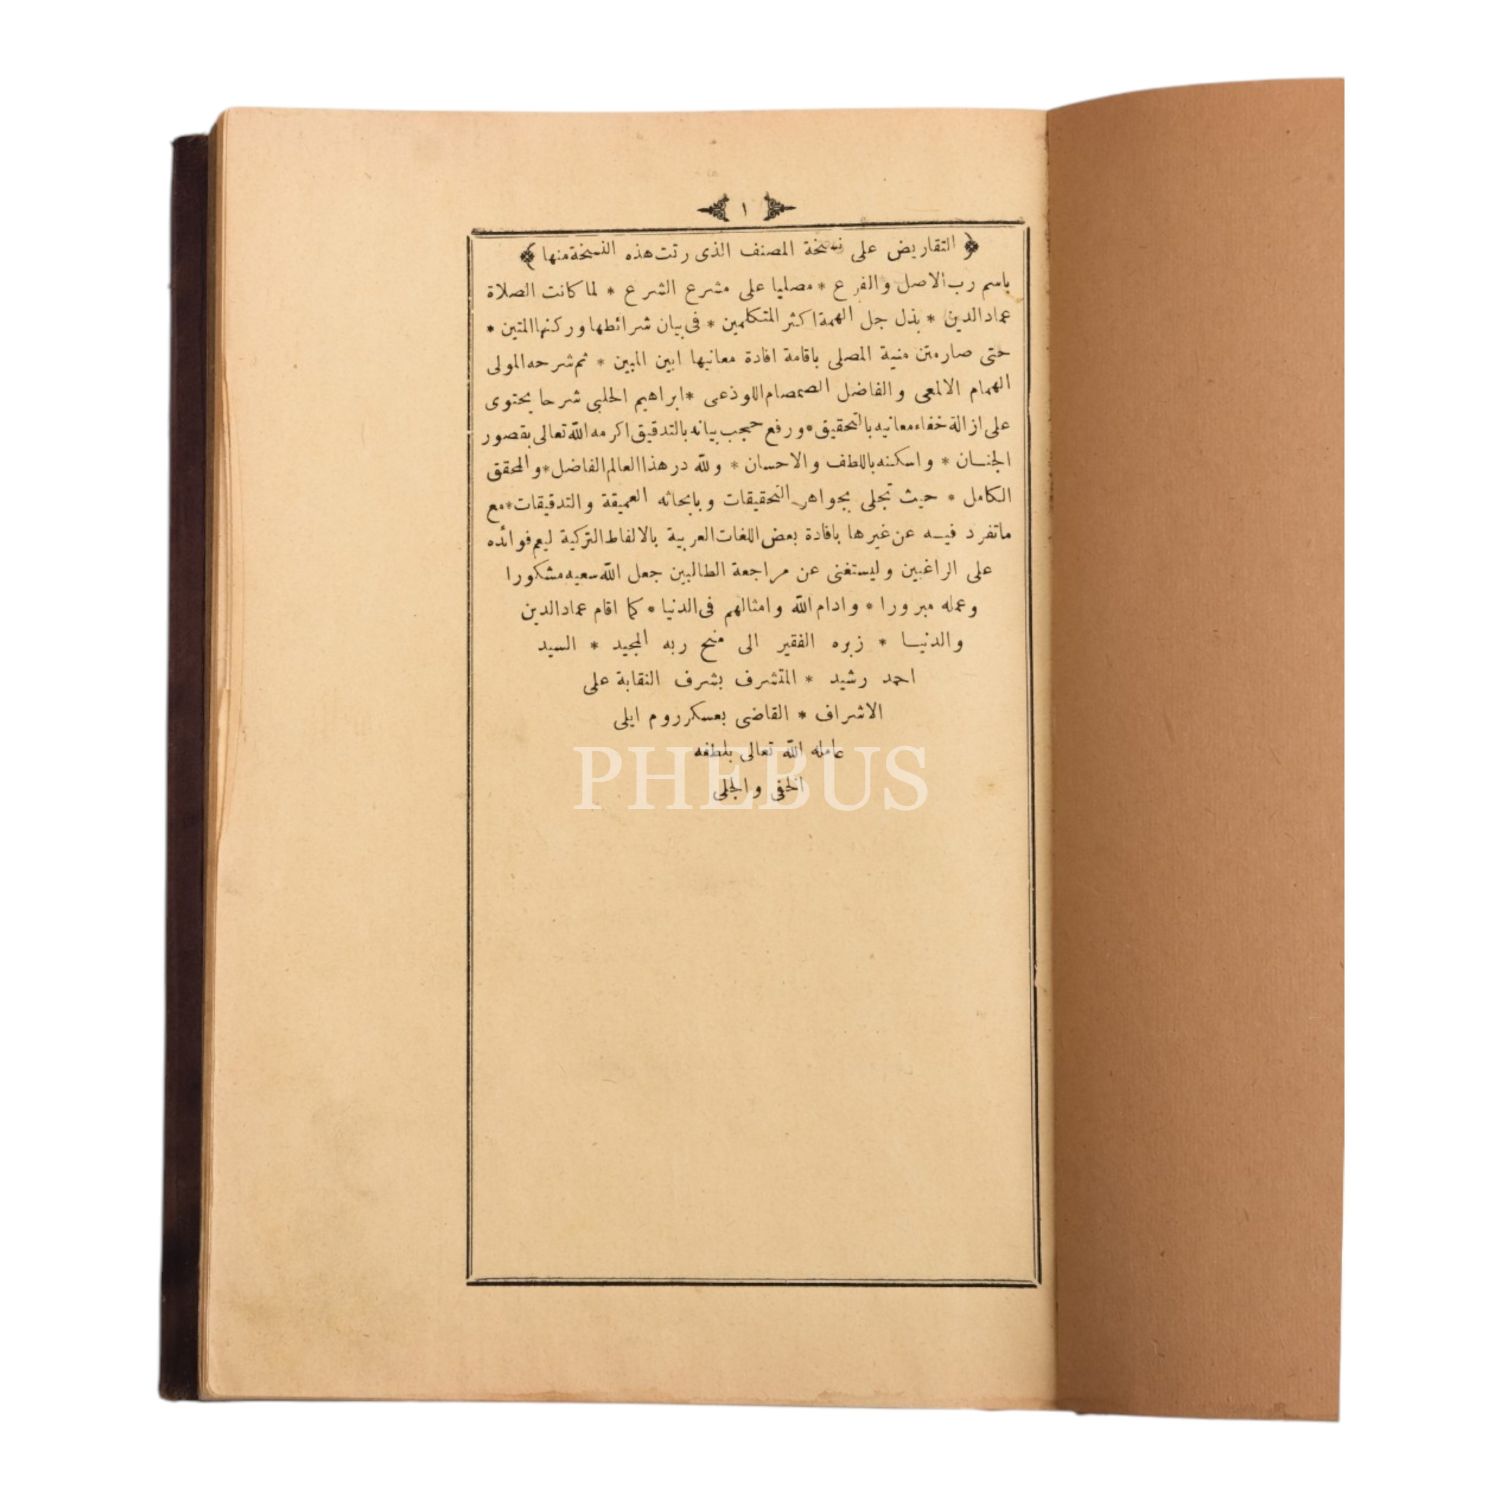 ١
﴿ التقاريض على نسخة المصنف الذى رتت هذه النسخة منها ﴾
باسم رب الاصل والفرع * مصليا على مشرع الشرع * لما كانت الصلاة
عماد الدين * بذل جل الهمة اكثر المتكلمين * فى بيان شرائطها وركنها المتين *
حتى صار متن منية المصلى باقامة افادة معانيها ابين المبين * ثم شرحه المولى
الهمام الالمعى والفاضل الصمصام اللوذعى * ابراهيم الحلبى شرحا يحتوى
على ازالة خفاء معانيه بالتحقيق * ورفع حجب بيانه بالتدقيق اكرمه الله تعالى بقصور
الجنان * واسكنه باللطف والاحسان * ولله در هذا العالم الفاضل * والمحقق
الكامل * حيث تجلى بجواهر التحقيقات وبابحاثه العميقة والتدقيقات * مع
ما تفرد فيه عن غيرها بافادة بعض اللغات العربية بالالفاظ التركية ليعم فوائده
على الراغبين وليستغنى عن مراجعة الطالبين جعل الله سعيه مشكورا
وعمله مبرورا * وادام الله وامثالهم فى الدنيا * كما اقام عماد الدين
والدنيا * زبره الفقير الى منح ربه المجيد * السيد
احمد رشيد * المتشرف بشرف النقابة على
الاشراف * القاضى بعسكر روم ايلى
عامله الله تعالى بلطفه
الخفى والجلى
PHEBUS